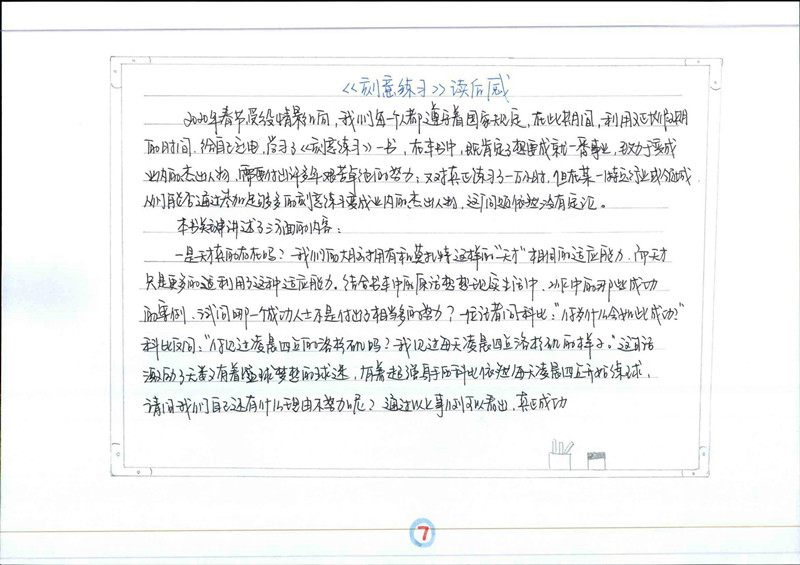 《刻意练习》读后感
2020年春节受疫情影响,我们每一个人都遵守着国家规定,在此期间,利用延长假期
的时间,给自己充电,学习了《刻意练习》一书,在本书中,既肯定了想要成就一番事业,致力于变成
业内的杰出人物,需要付出许多年艰苦卓绝的努力,又对真正练习了一万小时,但在某一特定行业或领域
人们能否通过参加足够多的刻意练习变成业内的杰出人物,这问题依然没有定论。
本书大神讲述了三方面的内容:
一是天才真的存在吗?我们的大脑拥有和莫扎特这样的“天才”相同的适应能力,而天才
只是更多的运利用了这种适应能力。结合书本中的原话想想现实生活中,工作中的那些成功
的案例,试问哪一个成功人士不是付出了相当多的努力?一位记者问科比:“你为什么会如此成功?”
科比反问:“你见过凌晨四点的洛杉矶吗?我见过每天凌晨四点洛杉矶的样子。”这句话
激励了无数有着篮球梦想的球迷,有着超强身手的科比依然每天凌晨四点开始练球,
请问我们自己还有什么理由不努力呢?通过以上事例可以看出,真正成功
7